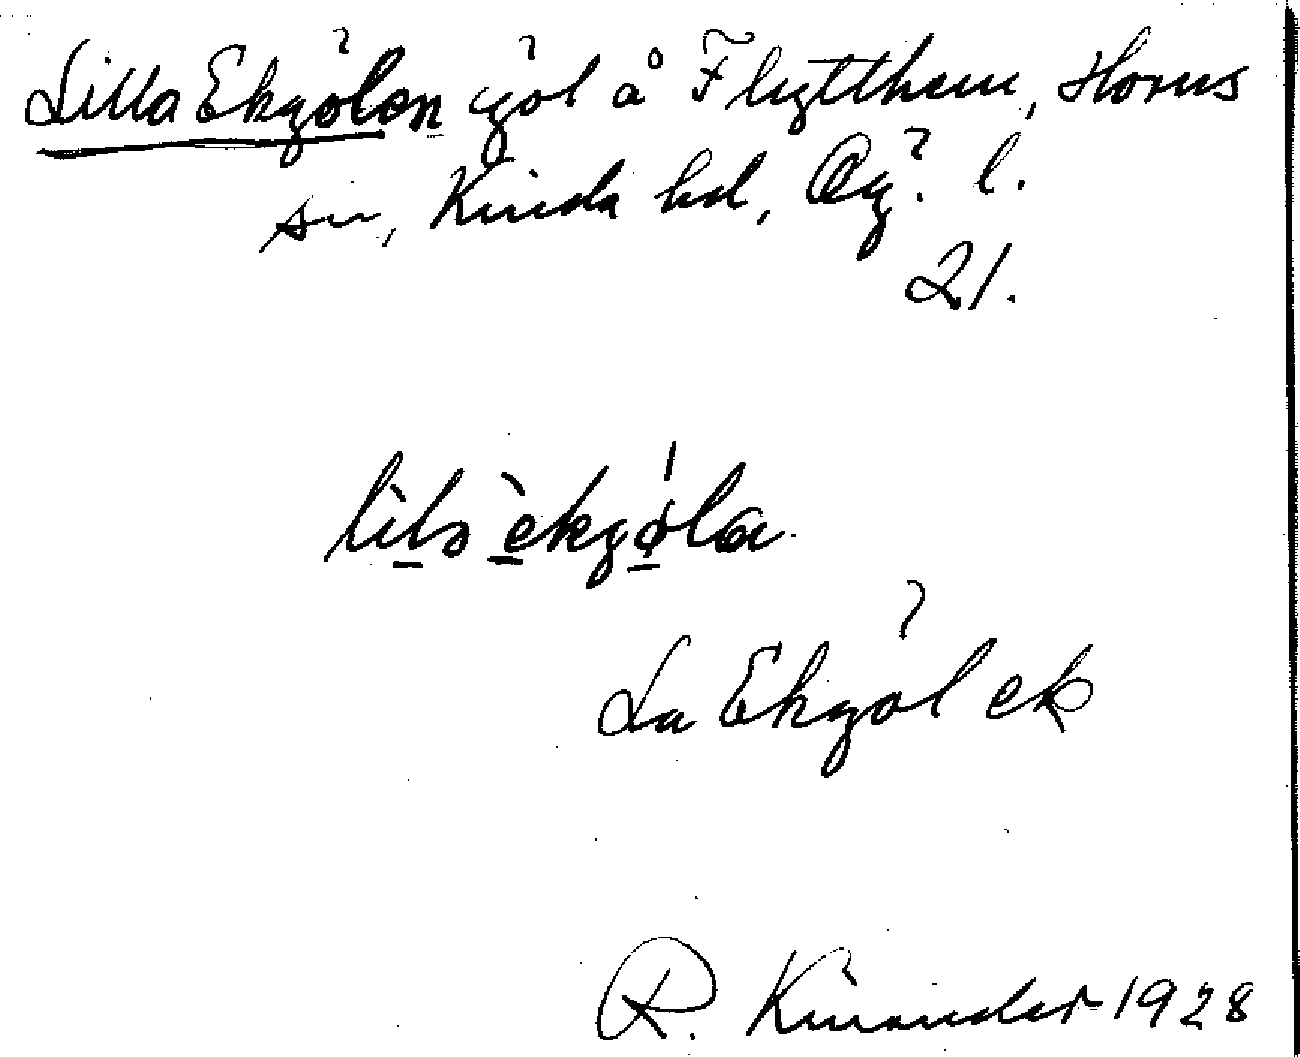 Lilla Ekgölen göl å Flytthem, Horns
sn, Kinda hd, Ög. l.
21.
lilə èkgǿla
La Ekgöl ek
R. Kinander 1928